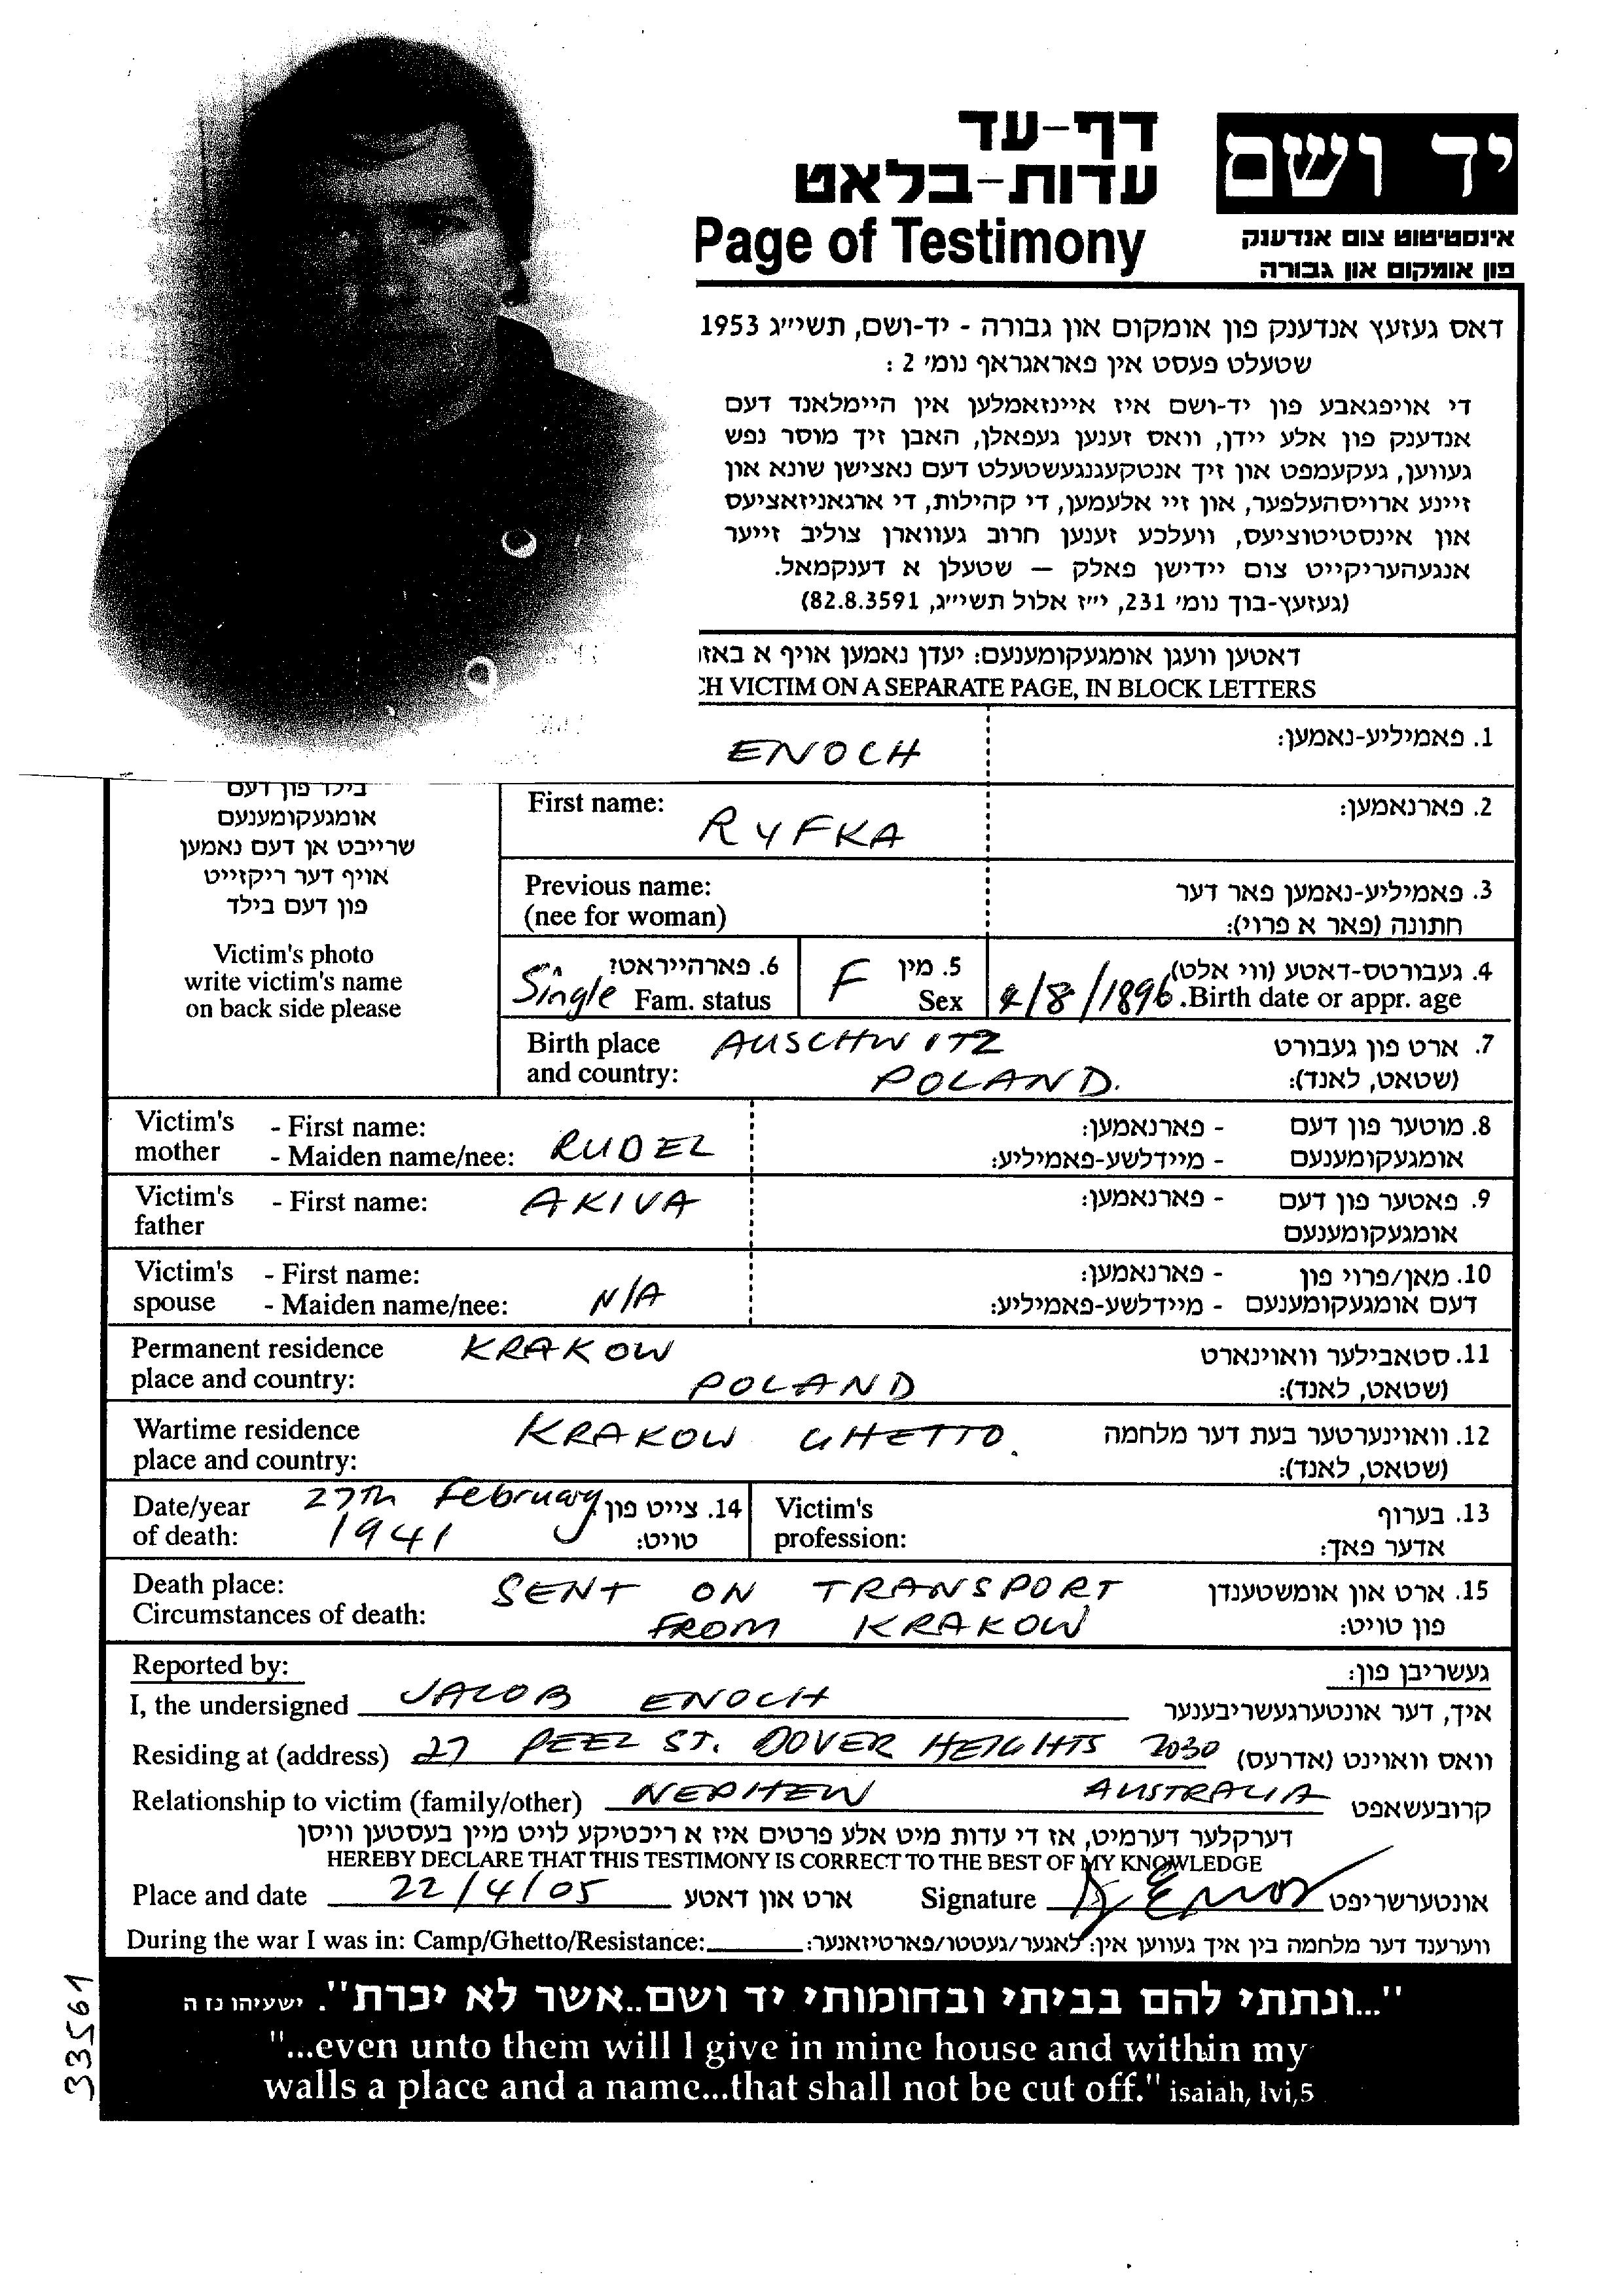 דף-עד
עדות-בלאט
Page of Testimony
יד ושם
אינסטיטוט צום אנדענק
פון אומקום און גבורה
דאס געזעץ אנדענק פון אומקום און גבורה - יד-ושם, תשי״ג 1953
שטעלט פעסט אין פאראגראף נומ׳ 2 :
די אויפגאבע פון יד-ושם איז איינזאמלען אין היימלאנד דעם
אנדענק פון אלע יידן, וואס זענען געפאלן, האבן זיך מוסר נפש
געווען, געקעמפט און זיך אנטקעגנגעשטעלט דעם נאצישן שונא און
זיינע ארויסהעלפער, און זיי אלעמען, די קהילות, די ארגאניזאציעס
און אינסטיטוציעס, וועלכע זענען חרוב געווארן צוליב זייער
אנגעהעריקייט צום יידישן פאלק — שטעלן א דענקמאל.
(געזעץ-בוך נומ׳ 231, י״ז אלול תשי״ג, 82.8.3591)
דאטען וועגן אומגעקומענעם: יעדן נאמען אויף א
VICTIM ON A SEPARATE PAGE, IN BLOCK LETTERS
ENOCH 1. פאמיליע-נאמען:
בילד פון דעם
אומגעקומענעם
שרייבט אן דעם נאמען
אויף דער ריקזייט
פון דעם בילד
Victim's photo
write victim's name
on back side please
First name: RYFKA 2. פארנאמען:
Previous name: 3. פאמיליע-נאמען פאר דער
(nee for woman) חתונה (פאר א פרוי):
Single 6. פארהייראט? Fam. status
F 5. מין Sex
8/1896 4. געבורטס-דאטע (ווי אלט) Birth date or appr. age.
Birth place AUSCHWITZ 7. ארט פון געבורט
and country: POLAND. (שטאט, לאנד):
Victim's - First name: - פארנאמען: 8. מוטער פון דעם
mother - Maiden name/nee: RUDEL - מיידלשע-פאמיליע: אומגעקומענעם
Victim's - First name: AKIVA - פארנאמען: 9. פאטער פון דעם
father אומגעקומענעם
Victim's - First name: - פארנאמען: 10. מאן/פרוי פון
spouse - Maiden name/nee: N/A - מיידלשע-פאמיליע: דעם אומגעקומענעם
Permanent residence KRAKOW 11. סטאבילער וואוינארט
place and country: POLAND (שטאט, לאנד):
Wartime residence KRAKOW GHETTO. 12. וואוינערטער בעת דער מלחמה
place and country: (שטאט, לאנד):
Date/year 27th February 14. צייט פון Victim's 13. בערוף
of death: 1941 טויט: profession: אדער פאך:
Death place: SENT ON TRANSPORT 15. ארט און אומשטענדן
Circumstances of death: FROM KRAKOW פון טויט:
Reported by: געשריבן פון:
I, the undersigned JACOB ENOCH איך, דער אונטערגעשריבענער
Residing at (address) 27 PEEL ST. DOVER HEIGHTS 2030 וואס וואוינט (אדרעס)
Relationship to victim (family/other) NEPHEW AUSTRALIA קרובעשאפט
דערקלער דערמיט, אז די עדות מיט אלע פרטים איז א ריכטיקע לויט מיין בעסטען וויסן
HEREBY DECLARE THAT THIS TESTIMONY IS CORRECT TO THE BEST OF MY KNOWLEDGE
Place and date 22/4/05 ארט און דאטע Signature אונטערשריפט
During the war I was in: Camp/Ghetto/Resistance: ווערענד דער מלחמה בין איך געווען אין: לאגער/געטטו/פארטיזאנער:
"...ונתתי להם בביתי ובחומותי יד ושם..אשר לא יכרת". ישעיהו נז ה
"...even unto them will I give in mine house and within my
walls a place and a name...that shall not be cut off." isaiah, lvi,5
33561